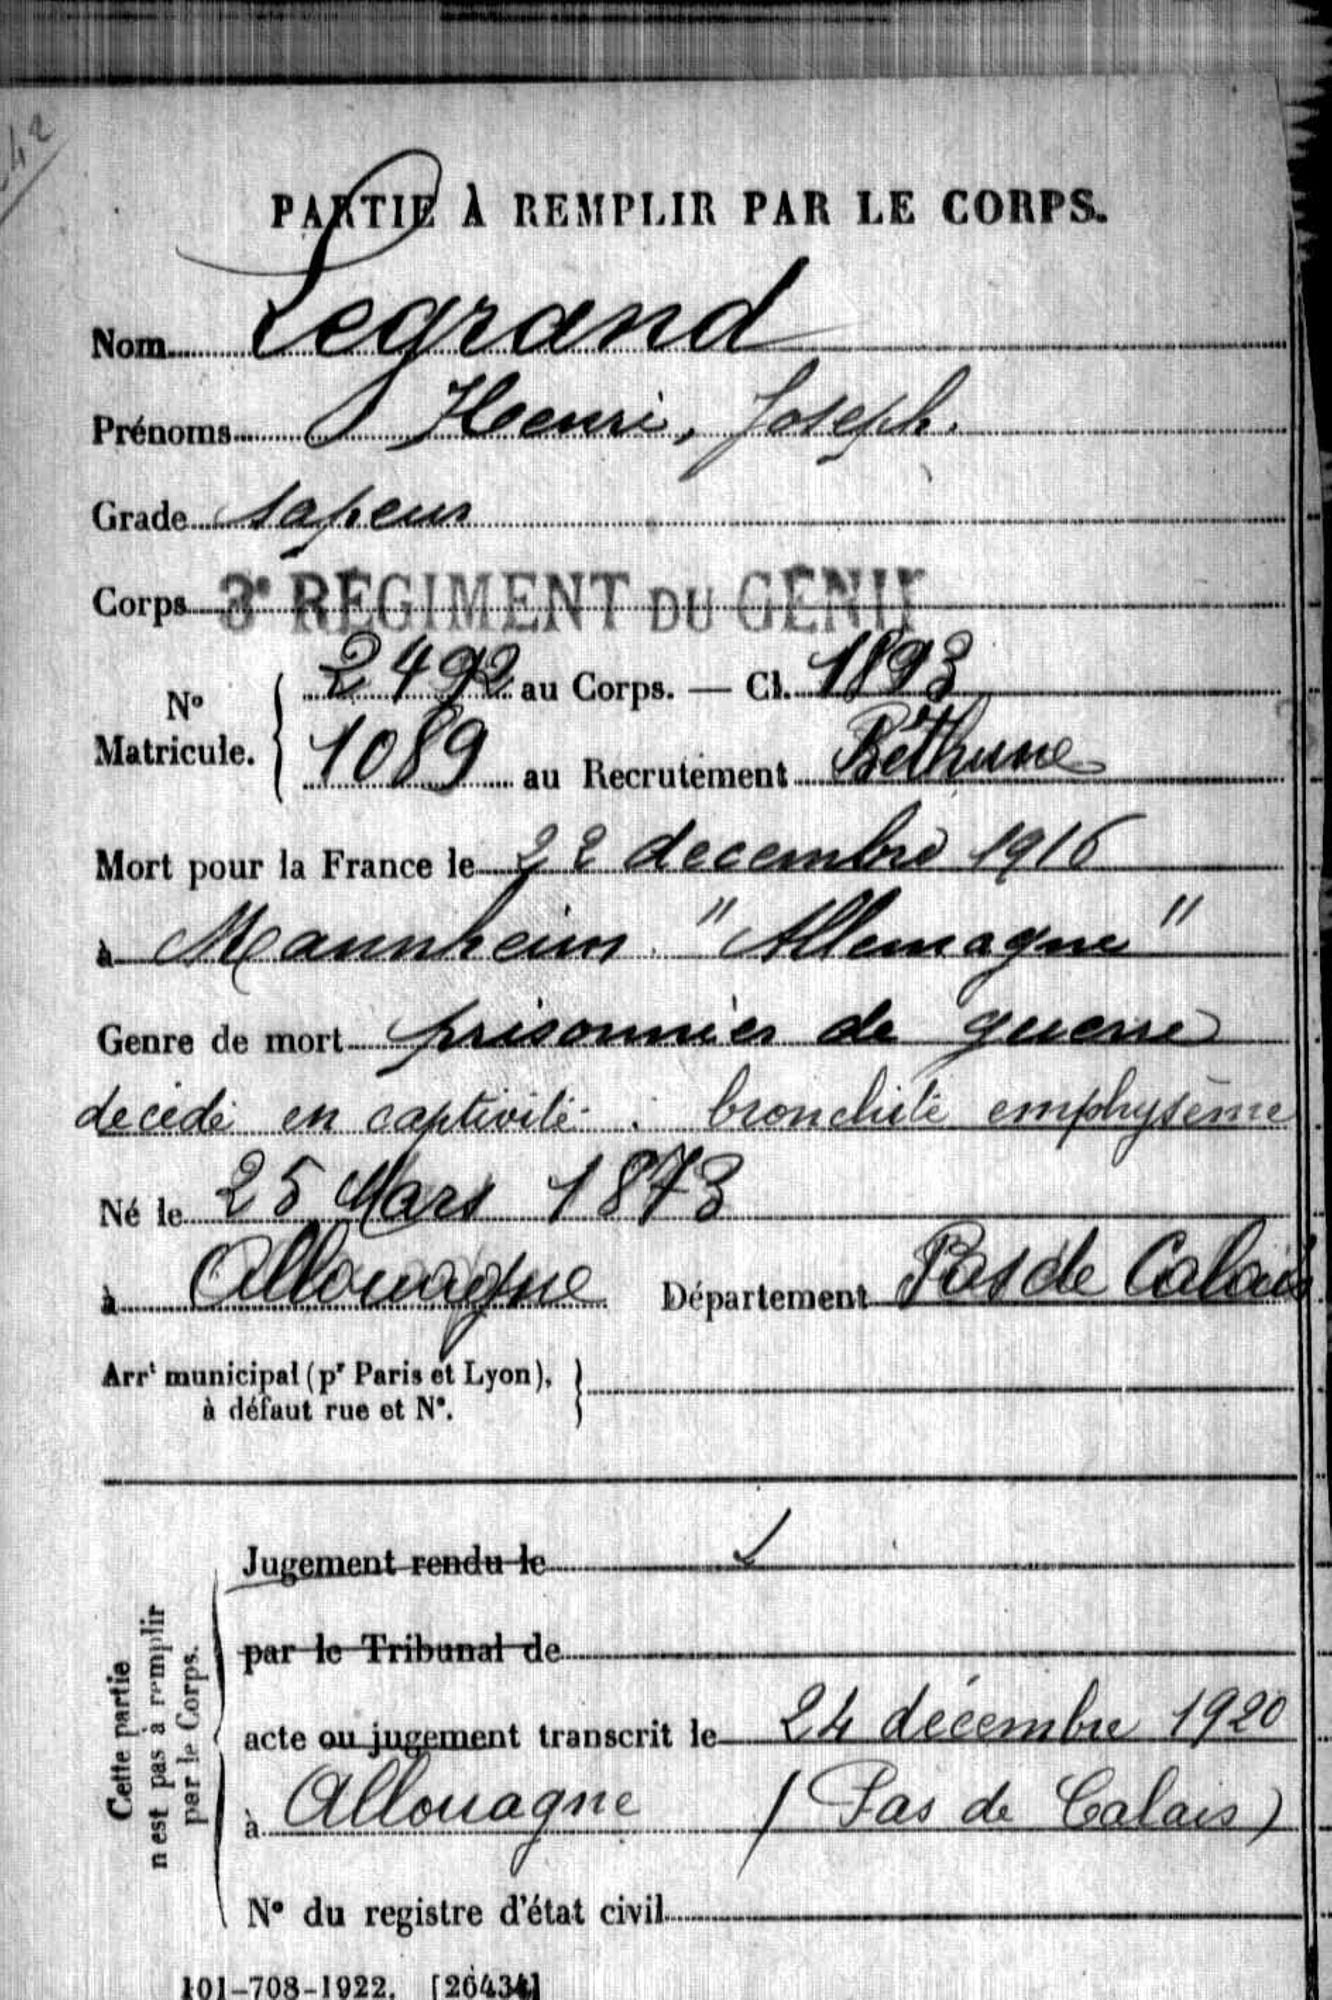 PARTIE À REMPLIR PAR LE CORPS.
Nom Legrand
Prénoms Henri, Joseph.
Grade sapeur
Corps 3e RÉGIMENT DU GÉNIE
No Matricule. 2492 au Corps. — Cl. 1893
1089 au Recrutement Béthune
Mort pour la France le 22 decembre 1916
à Mannheim "Allemagne"
Genre de mort prisonnier de guerre
decédé en captivité : bronchite emphysème
Né le 25 Mars 1873
à Allouagne Département Pas de Calais
Arrt municipal (pr Paris et Lyon),
à défaut rue et No.
Cette partie
n'est pas à remplir
par le Corps.
Jugement rendu le
par le Tribunal de
acte ou jugement transcrit le 24 décembre 1920
à Allouagne (Pas de Calais)
No du registre d'état civil
101-708-1922. [26434]